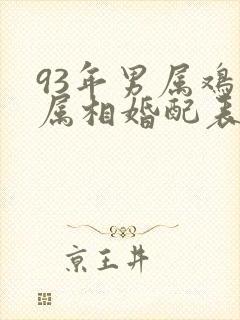 93年男属鸡
属相婚配表
京王井